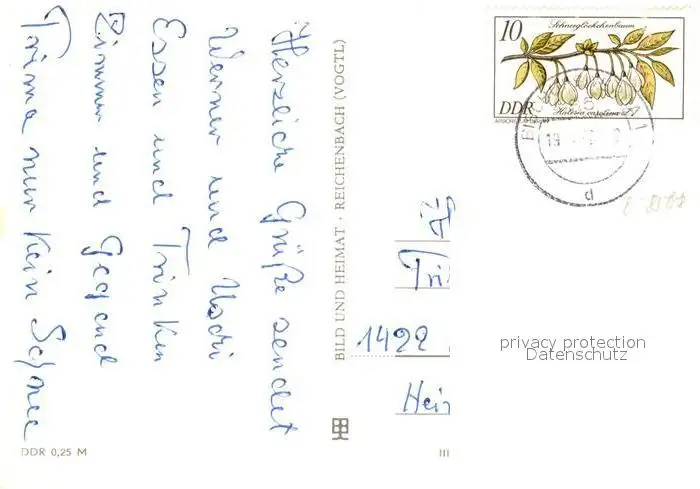 Herzliche Grüße sendet
Werner und Uschi
Essen und Trinken
Zimmer und Gegend
Prima nur kein Schnee
DDR 0,25 M
BILD UND HEIMAT · REICHENBACH (VOGTL)
III
10
Schneeglöckchenbaum
DDR
Halesia carolina L.
19
d
1422
privacy protection
Datenschutz